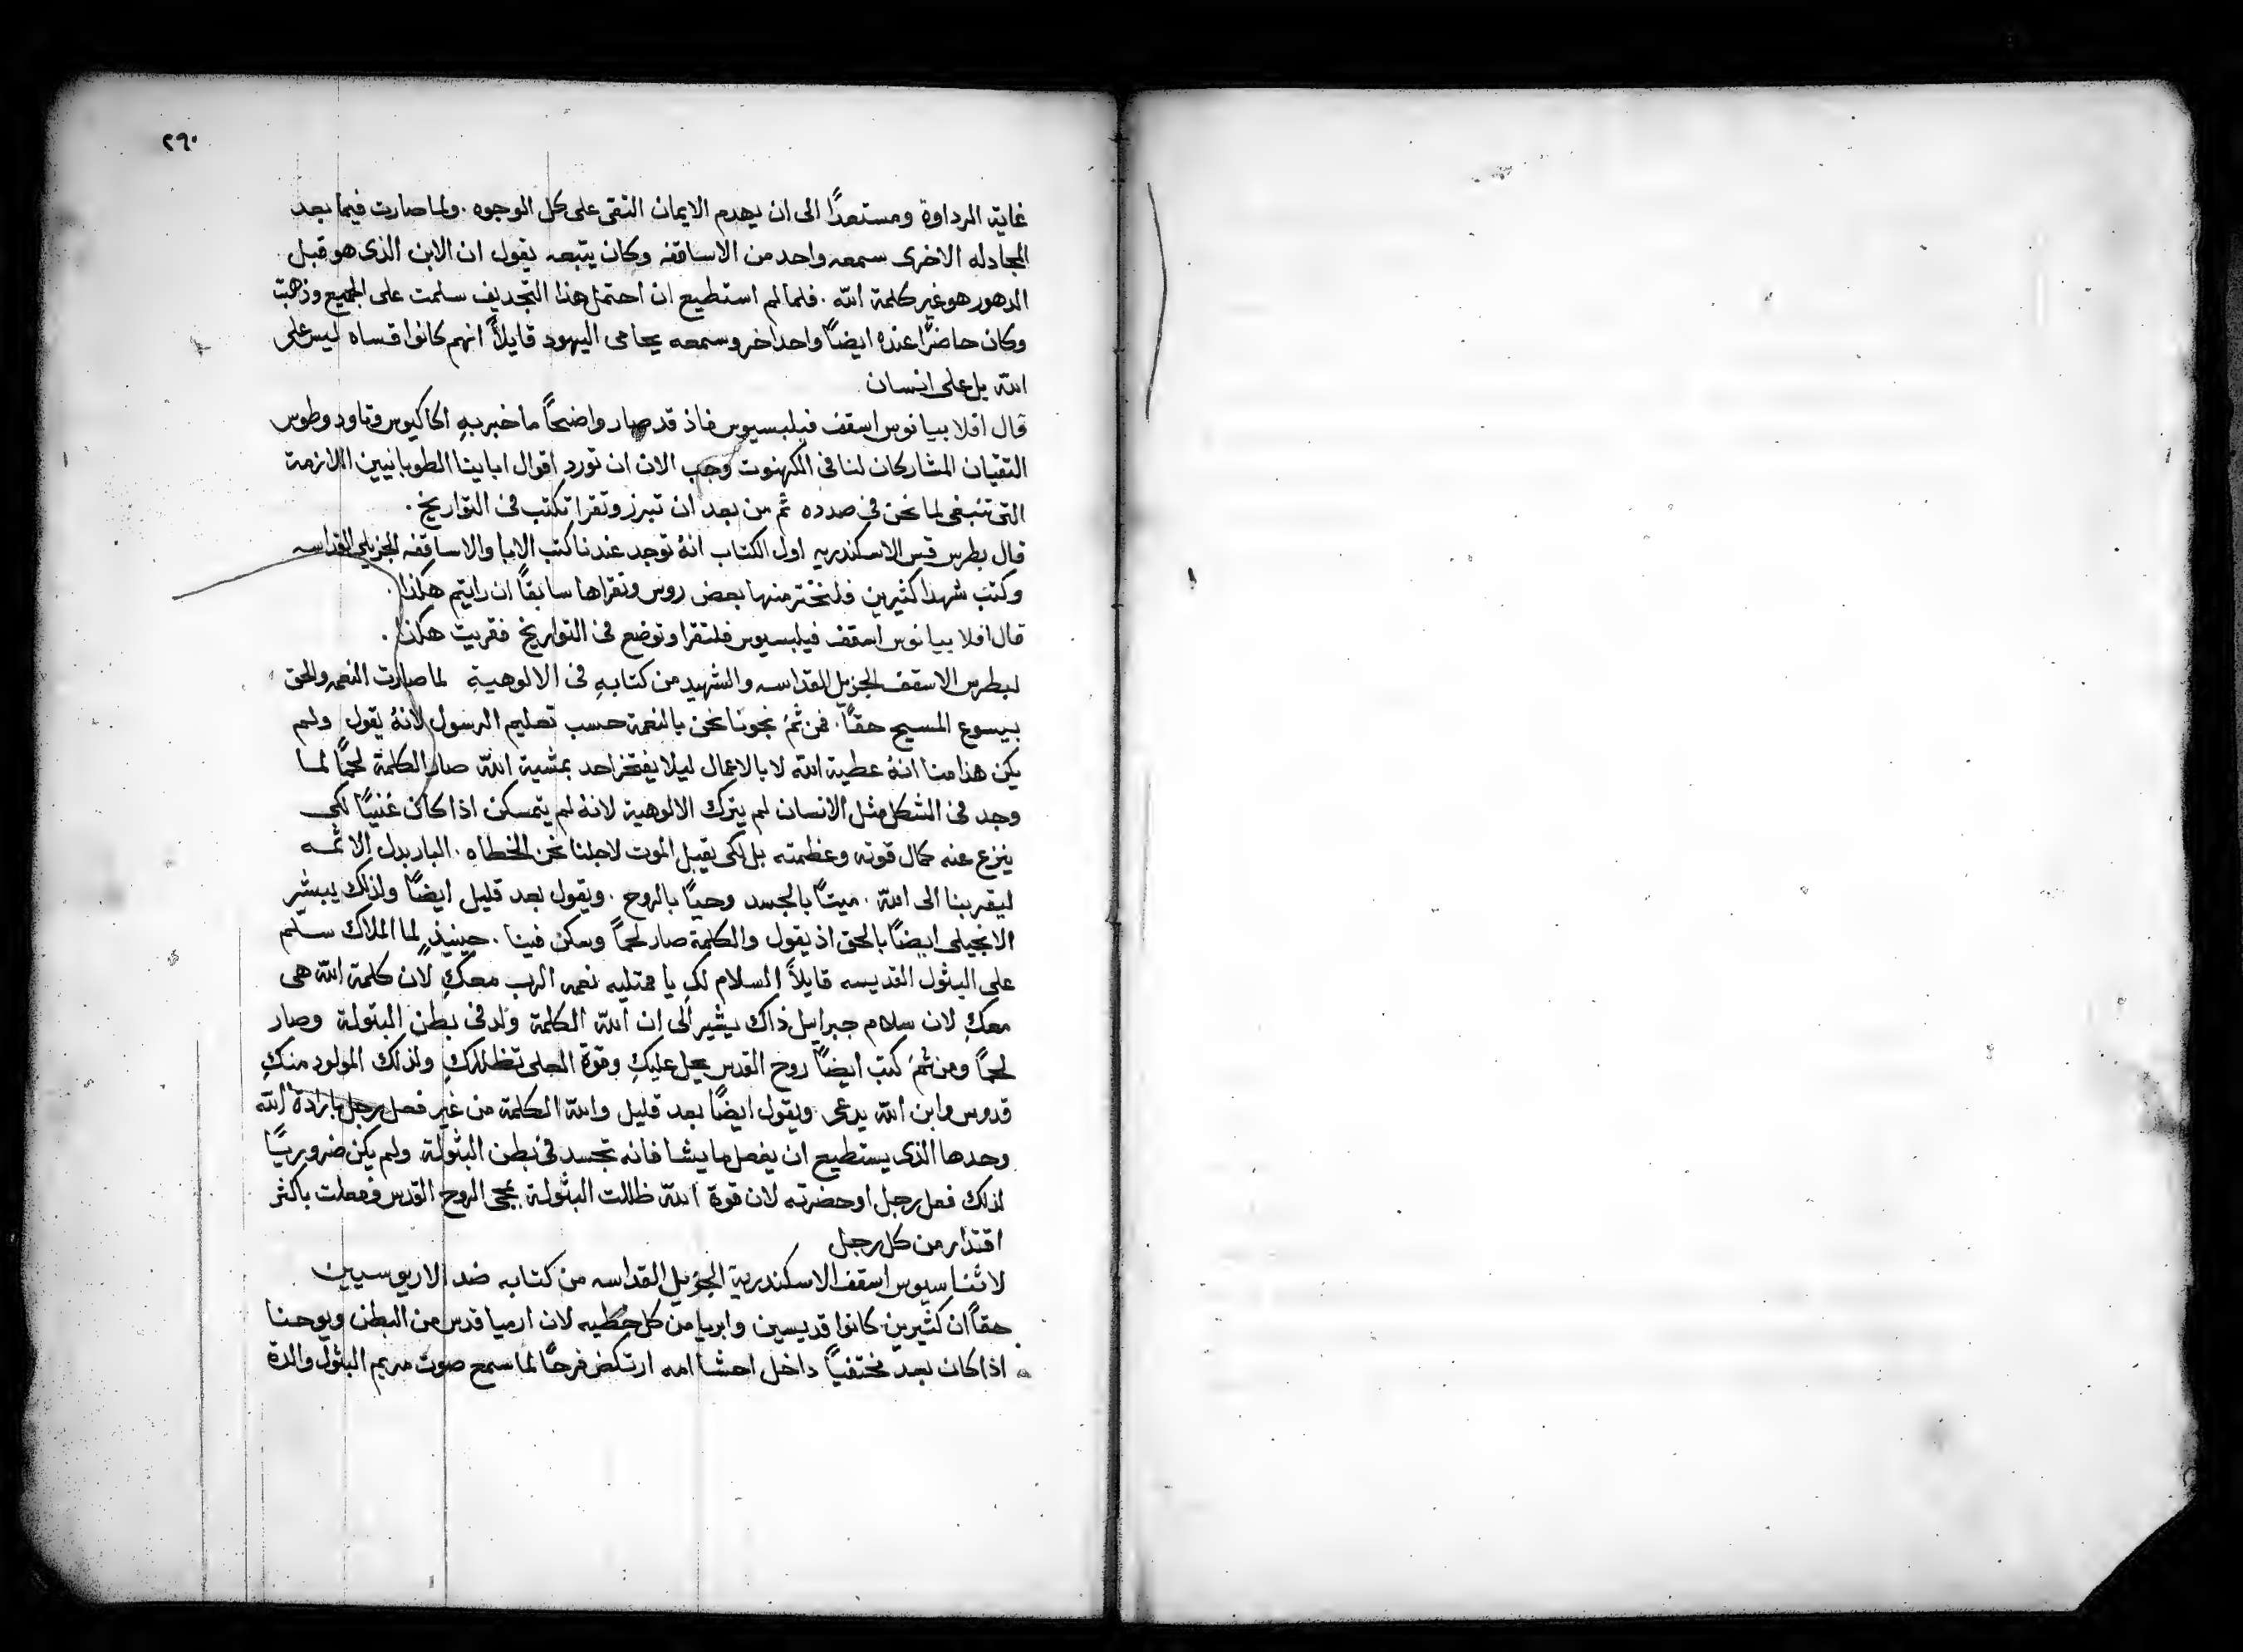 ٢٩٠
غاية الرداوة ومستعدًا الى ان يهدم الايمان النقى على كل الوجوه . ولما صارت فيما بعد
المجادله الاخرى سمعه واحد من الاساقفه وكان يتبعه يقول ان الابن الذى هو قبل
الدهور هو غير كلمة الله . فلما لم استطيع ان احتمل هذا التجديف سلمت على الجميع وذهبت
وكان حاضرًا عنده ايضًا واحد اخر وسمعه يحامى اليهود قايلاً انهم كانوا قساه ليس على
الله بل على انسان
قال افلابيانوس اسقف فيلبسيوس فاذ قد صار واضحاً ما خبر بهِ اكاكيوس وتاودوطوس
التقيان المشاركان لنا فى الكهنوت وجب الان ان تورد اقوال ابايينا الطوبانيين اللازمة
التى تنبغى لما نحن فى صدده ثم من بعد ان تبرز وتقرا تكتب فى التواريخ .
قال بطرس قس الاسكندريه اول الكتاب انهُ توجد عندنا كتب الابا والاساقفه الجزيلى القداسه
وكتب شهدا كثيرين فلنختر منها بعض روس ونقراها سابقًا ان رايتم هكذا .
قال افلابيانوس اسقف فيلبسيوس فلتقرا وتوضع فى التواريخ فقريت هكذا .
لبطرس الاسقف الجزيل القداسه والشهيد من كتابهِ فى الالوهيةِ لما صارت النعمه والحق
بيسوع المسيح حقًا . فمن ثمَ نجونا نحن بالنعمة حسب تعليم الرسول لانهُ يقول ولم
يكن هذا منا انهُ عطية الله لا بالاعمال ليلا يفتخر احد بمشية الله صار الكلمة لحمًا لما
وجد فى الشكل مثل الانسان لم يترك الالوهية لانهُ لم يتمسكن اذا كان غنيًا لكى
ينزع عنه كمال قوته وعظمته بل لكى يقبل الموت لاجلنا نحن الخطاه . البار بدل الاثمه
ليقربنا الى الله . ميتًا بالجسد وحيًا بالروح . ويقول بعد قليل ايضًا ولذلك يبشر
الانجيلى ايضًا بالحق اذ يقول والكلمة صار لحمًا وسكن فينا . حينيذٍ لما الملاك سلّم
على البثول القديسه قايلاً السلام لكِ يا ممتليه نعمه الرب معكِ لان كلمة الله هى
معكِ لان سلام جبراييل ذاك يشير الى ان الله الكلمة ولد فى بطن البتولة وصار
لحمًا ومن ثمَ كتب ايضًا روح القدس يحل عليكِ وقوة العلى تظللكِ ولذلك المولود منكِ
قدوس وابن الله يدعى ويقول ايضًا بعد قليل والله الكلمة من غير فعل رجل بارادة الله
وحدها الذى يستطيع ان يفعل ما يشا فانه تجسد فى بطن البثولة ولم يكن ضروريًا
لذلك فعل رجل او حضرته لان قوة الله ظللت البثولة بمجى الروح القدس ففعلت باكثر
اقتدار من كل رجل
لاثناسيوس اسقف الاسكندرية الجزيل القداسه من كتابه ضد الاريوسيين
حقاً ان كثيرين كانوا قديسين وابريا من كل خطيه لان ارميا قدس من البطن ويوحنا
اذا كان بعد مختفيًا داخل احشا امه ارتكض فرحًا لما سمع صوت مريم البثول والدة